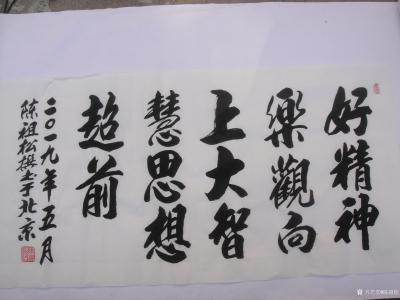 好精神
樂觀向
上大智
慧思想
超前
二〇一九年五月
陈祖松撰书于北京